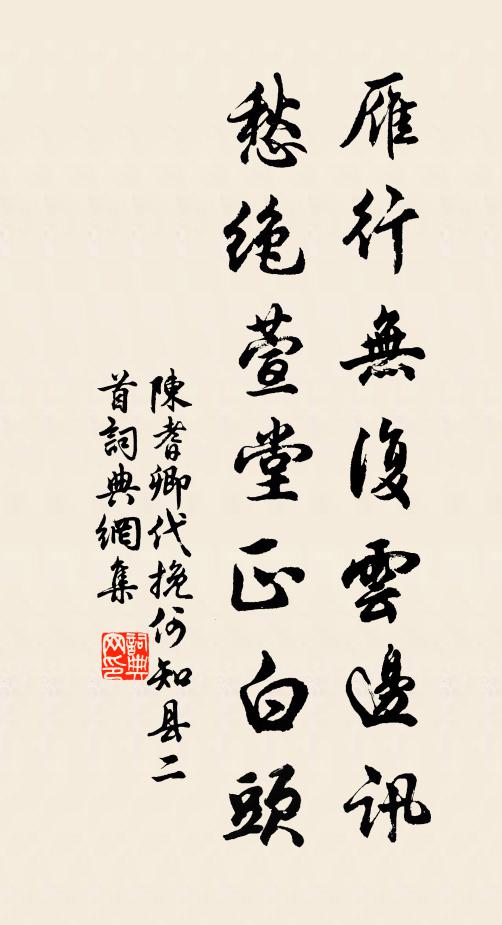 雁行無復雲邊訊
愁絕萱堂正白頭
陳耆卿代挽何知县二
首詞典網集
詞典網印